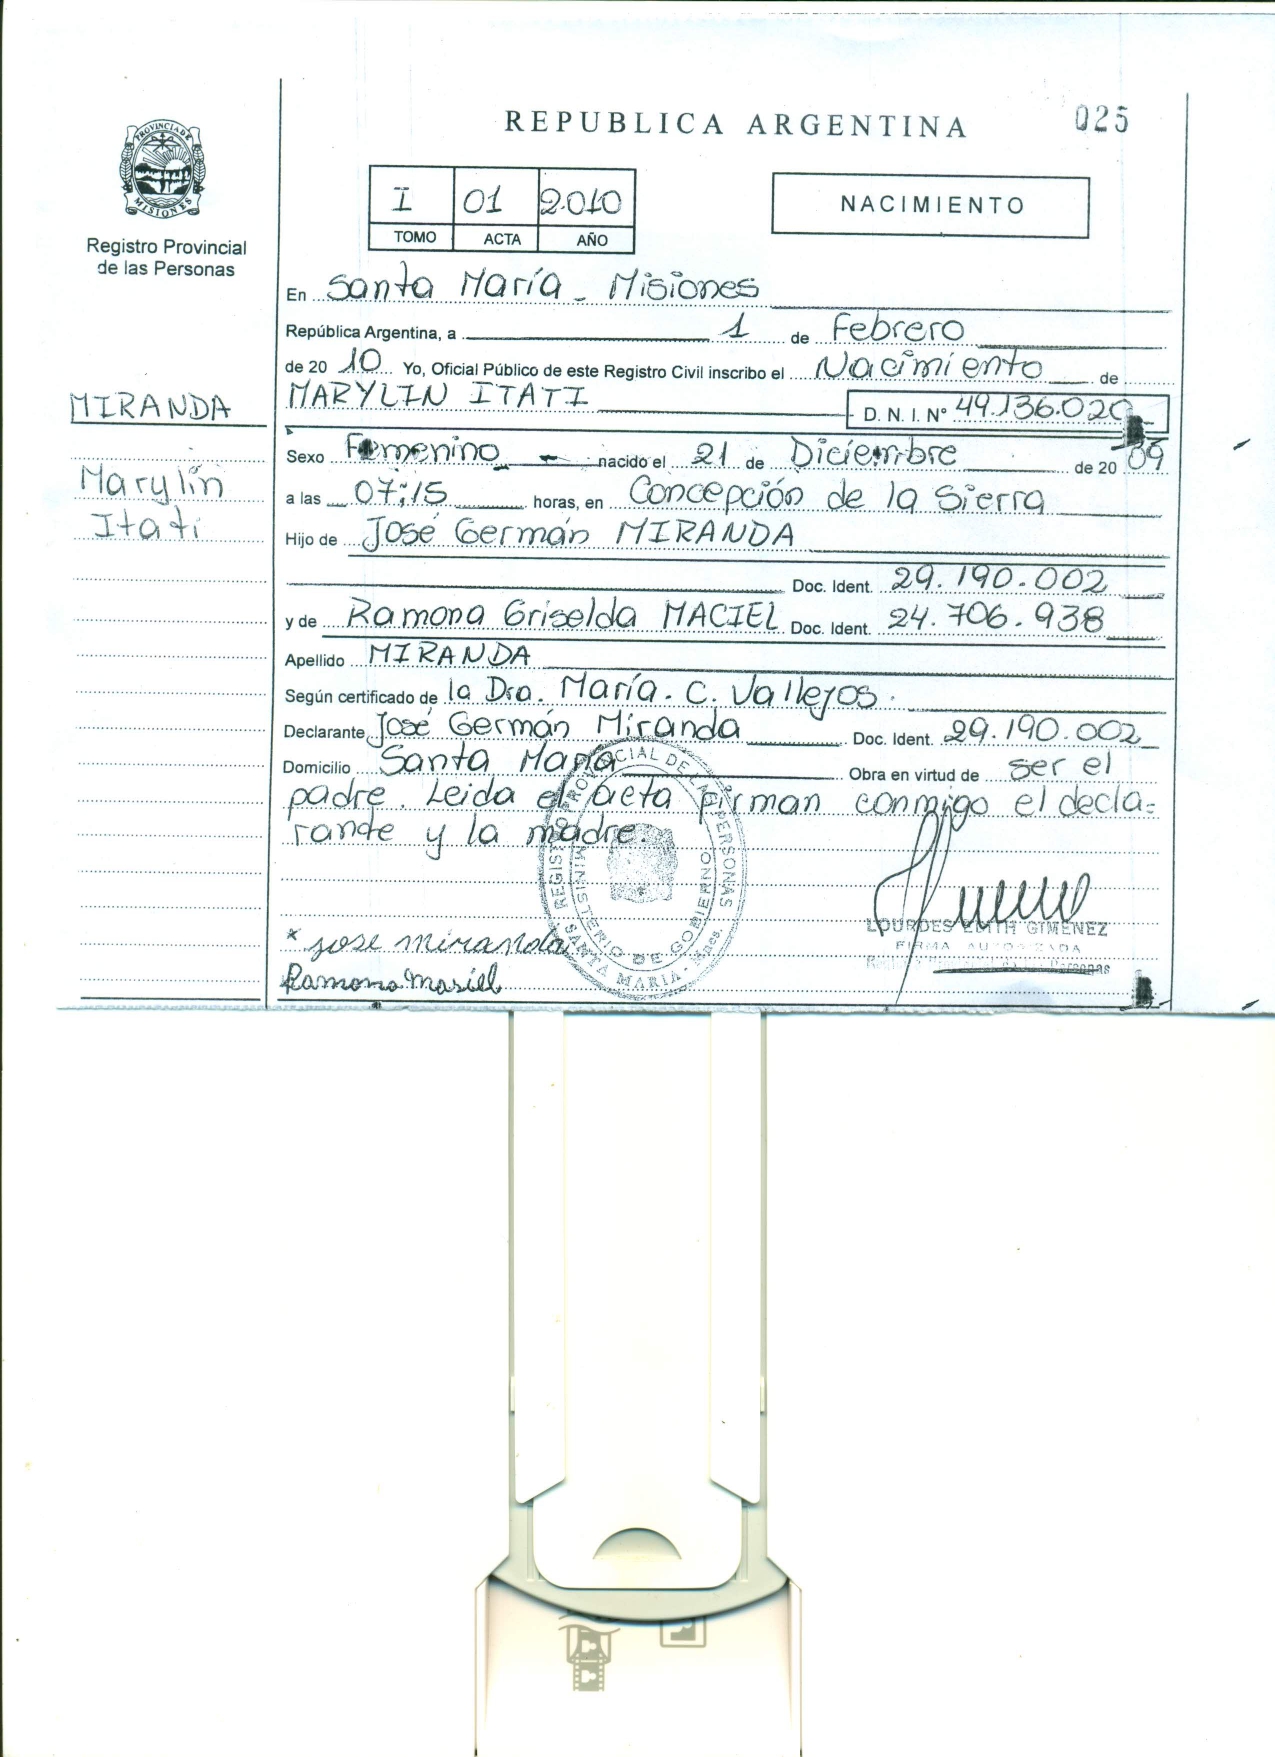 025
REPUBLICA ARGENTINA
PROVINCIA DE MISIONES
Registro Provincial
de las Personas
I 01 2010
TOMO ACTA AÑO
NACIMIENTO
En Santa María - Misiones
República Argentina, a 1 de Febrero
de 20 10 Yo, Oficial Público de este Registro Civil inscribo el Nacimiento de
MARYLIN ITATI D. N. I. Nº 49.136.020
MIRANDA
Marylin
Itati
Sexo Femenino nacido el 21 de Diciembre de 20 09
a las 07:15 horas, en Concepción de la Sierra
Hijo de José Germán MIRANDA
Doc. Ident. 29.190.002
y de Ramona Griselda MACIEL Doc. Ident. 24.706.938
Apellido MIRANDA
Según certificado de la Dra. María. C. Vallejos.
Declarante José Germán Miranda Doc. Ident. 29.190.002
Domicilio Santa María Obra en virtud de ser el
padre. Leida el acta firman conmigo el decla-
rante y la madre.
REGISTRO PROVINCIAL DE LAS PERSONAS
MINISTERIO DE GOBIERNO
SANTA MARIA - Mnes.
x jose miranda
Ramona Masiel
LOURDES EMTH GIMENEZ
FIRMA AUTORIZADA
Personas